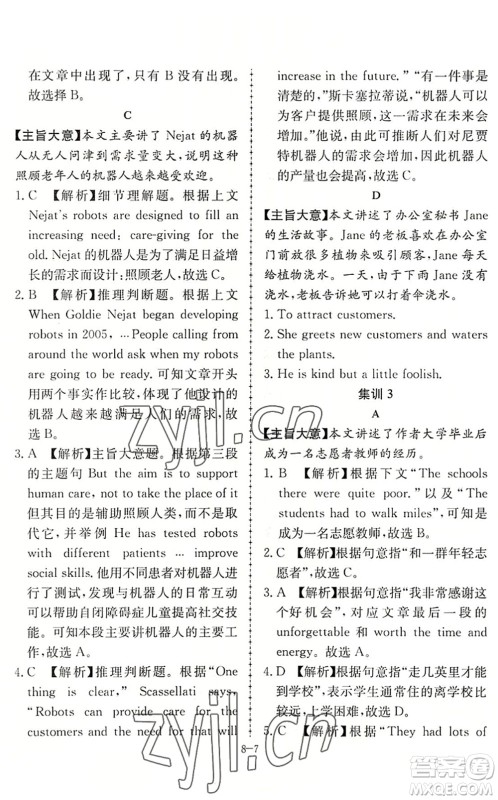 在文章中出现了,只有 B 没有出现。
故选择 B。
C
【主旨大意】本文主要讲了 Nejat 的机器
人从无人问津到需求量变大,说明这种
照顾老年人的机器人越来越受欢迎。
1. C 【解析】细节理解题。根据上文
Nejat's robots are designed to fill an
increasing need: care-giving for the
old. Nejat 的机器人是为了满足日益增
长的需求而设计:照顾老人。故选 C。
2. B 【解析】推理判断题。根据上文
When Goldie Nejat began developing
robots in 2005, … People calling from
around the world ask when my robots
are going to be ready. 可知文章开头
用两个事实作比较,体现了他设计的
机器人越来越满足人们的需求,故
选 B。
3. A 【解析】主旨大意题。根据第三段
的主题句 But the aim is to support
human care, not to take the place of it
但其目的是辅助照顾人类,而不是取
代它,并举例 He has tested robots
with different patients … improve
social skills. 他用不同患者对机器人进
行了测试,发现与机器人的日常互动
可以帮助自闭障碍症儿童提高社交技
能。可知本段主要讲机器人的工作方
式。故选 A。
4. C 【解析】推理判断题。根据“One
thing is clear,” Scassellati says,
“Robots can provide care for the
customers and the need for that will
increase in the future.” “有一件事是
清楚的,”斯卡塞拉蒂说,“机器人可以
为客户提供照顾,这一需求在未来会
增加。”由此可以推断人们对机尼贾
特机器人的需求会增加,故选 C。
D
【主旨大意】本文讲述了办公室秘书 Jane
的生活故事。Jane 的老板喜欢在办公室
门前放很多植物来吸引顾客,Jane 每天
给植物浇水。一天,由于 Jane 过于繁
忙,老板告诉她可以打伞浇水。
1. To attract customers.
2. She greets new customers and waters
the plants.
3. He is kind but a little foolish.
集训 3
A
【主旨大意】本文讲述了作者大学毕业后
成为一名志愿者教师的经历。
1. B 【解析】根据下文“The schools
there were quite poor.” 以及“The
students had to walk miles”,可知作者
成为一名志愿教师,故选 B。
2. C 【解析】根据句意指“和一群年轻志
愿者”,故选 C。
3. A 【解析】根据句意指“我非常感谢这
个好机会”,对应文章最后的
unforgettable 和 worth the time and
energy. 故选 A。
4. D 【解析】根据句意指“走几英里才能
到学校”,表示学生通常住的离学校比
较远,上学困难。故选 D。
5. C 【解析】根据“They had lots of
8-7
zyjl.cn
zyjl.cn
答案圈
MXQE.COM